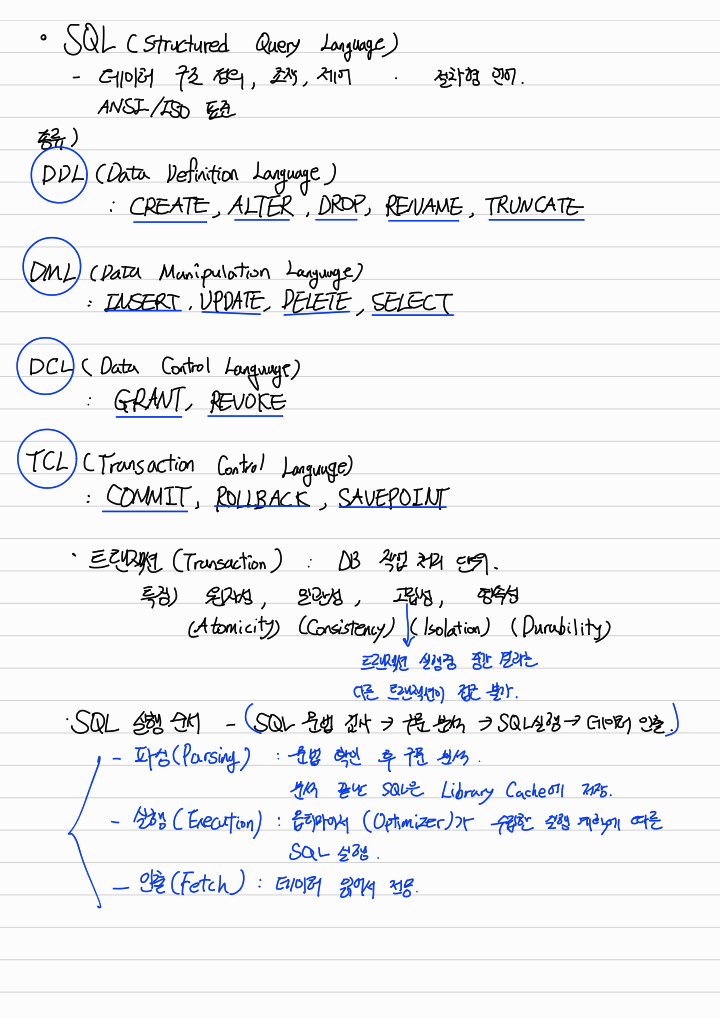 • SQL (Structured Query Language)
- 데이터 구조 정의, 조작, 제어 . 절차형 언어.
ANSI/ISO 표준
종류)
DDL (Data Definition Language)
: CREATE, ALTER, DROP, RENAME, TRUNCATE
DML (Data Manipulation Language)
: INSERT, UPDATE, DELETE, SELECT
DCL (Data Control Language)
: GRANT, REVOKE
TCL (Transaction Control Language)
: COMMIT, ROLLBACK, SAVEPOINT
· 트랜잭션 (Transaction) : DB 작업 처리 단위.
특징) 원자성, 일관성, 고립성, 영속성
(Atomicity) (Consistency) (Isolation) (Durability)
트랜잭션 실행중 중간 결과는
다른 트랜잭션이 접근 불가.
·SQL 실행 순서 - (SQL 문법 검사 → 구문 분석 → SQL실행 → 데이터 인출.)
- 파싱(Parsing) : 문법 확인 후 구문 분석.
분석 끝난 SQL은 Library Cache에 저장.
- 실행(Execution) : 옵티마이저(Optimizer)가 수립한 실행 계획에 따른
SQL 실행.
- 인출(Fetch) : 데이터 읽어서 전송.